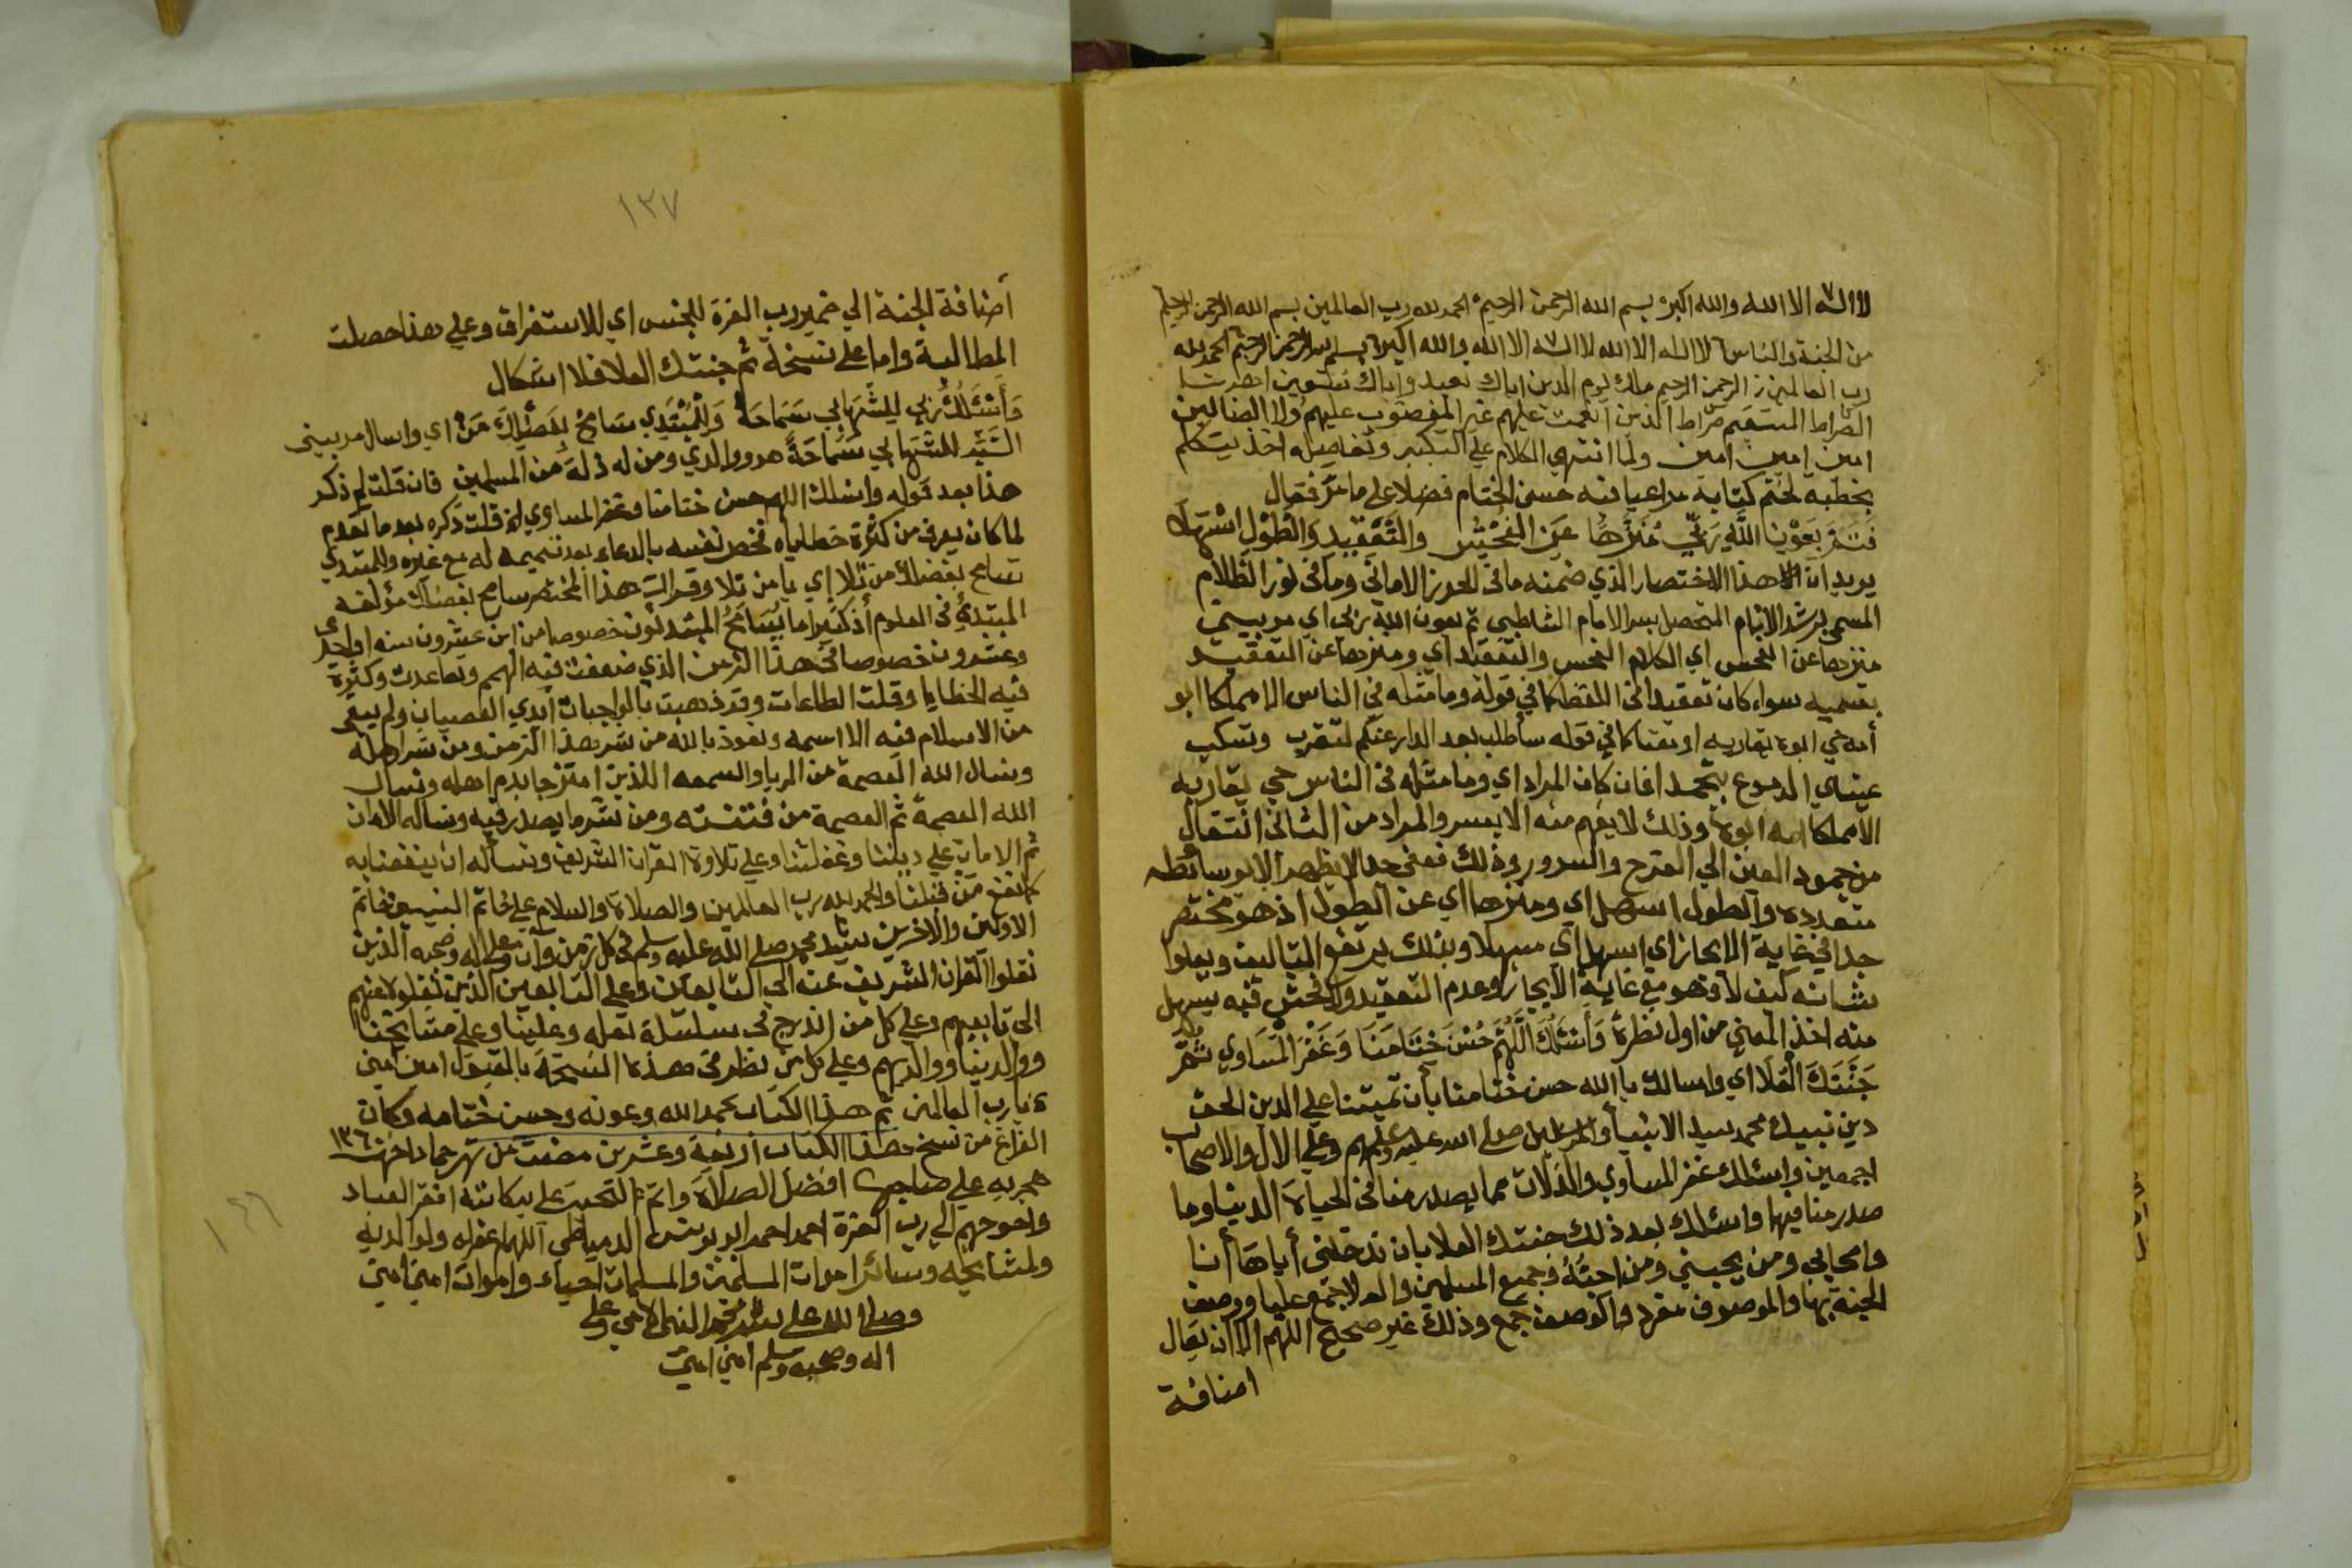 لا اله الا الله والله اكبر بسم الله الرحمن الرحيم الحمد لله رب العالمين بسم الله الرحمن الرحيم
من الجنة والناس لا اله الا الله لا اله الا الله والله اكبر بسم الله الرحمن الرحيم الحمد لله
رب العالمين الرحمن الرحيم مالك يوم الدين اياك نعبد واياك نستعين اهدنا
الصراط المستقيم صراط الذين انعمت عليهم غير المغضوب عليهم ولا الضالين
امين امين امين ولما انتهي الكلام علي التكبير وتفاصيله اخذ يتكلم
بخطبه لختم كتابه مراعيا فيه حسن الختام فضلا علي ما مر فقال
فَتَمَّ بَعَوْنِ اللَّهِ رَبِّي مُنَزَّهًا عَنِ الفُحْشِ والتَّعْقِيدِ وَالطُّوْلِ اسْهَلا
يريد ان هذا الاختصار الذي ضمنه ما في الحرز الاماني وما في نور الظلام
المسمي برشد الانام المتحصل بسر الامام الشاطبي تم بعون الله ربي اي مربيني
منزها عن الفحس اي الكلام الفحس والتعقيد اي ومنزها عن التعقيد
بقسميه سواء كان تعقيدا في اللفظ كما في قوله وما مثله في الناس الا مملكا ابو
أمه حي ابوه يقاربه او معنا كما في قوله سأطلب بعد الدار عنكم لتقرب وتسكب
عيناي الدموع لتجمدا فان كان المراد اي وما مثله في الناس حي يقاربه
الا مملكا امه ابوه وذلك لا يفهم منه الا بعسر والمراد من الثاني انتقال
من جمود العين الي الفرح والسرور وذلك معني حد لا يظهر الا بوسائطه
متعدده والطول اسهل اي ومنزها اي عن الطول اذ هو مختصر
جدا في غاية الايجاز اي اسهل اي مسهلا وبذلك يرتفع التاليف ويعلوا
شانه كيف لا وهو مع غاية الايجاز وعدم التعقيد والفحش فيه يسهل
منه اخذ المعني من اول نظرة وَأَسْئَلُكَ اللَّهُمَّ حُسْنَ خْتَامَنَا وَغَفْرَ الْمَسَاوِي ثُمَّ
جَنَّتَكَ الْعُلَا اي واسالك يا الله حسن ختامنا بأن تميتنا علي الدين الحق
دين نبيك محمد سيد الانبيأ والمرسلين صلي الله عليه وعليهم وعلي الال والاصحاب
اجمعين واسئلك غفر المساوي والذلات مما يصدر منا في الحياة الدنيا وما
صدر منا فيها واسئلك بعد ذلك جنتك العلا بان تدخلني أياها أنا
واصحابي ومن يحبني ومن احبه وجميع المسلمين والعلا جمع عليا ووصف
الجنة بها والموصوف مفرد والوصف جمع وذلك غير صحيح اللهم الا ان يقال
اضافة
١٣٧
أضافة الجنة الي ضمير رب العزة للجنس اي للاستغراق وعلي هذا حصلت
المطالبة واما علي نسخة ثم جنتك العلا فلا اشكال
وَأَسْئَلُكْ رَبِّي لِلشَّهَابِي سَمَاحَةً وَلْمُبْتَدِي سَامِحْ بِفَضْلِكَ مَنْ اي واسال مربيني
السَّيِّد للشهابي سَمَاحَةً هو ووالدي ومن له ذلة من المسلمين فان قلت لم ذكر
هذا بعد قوله واسئلك اللهم حسن ختامنا وغفر المساوي الخ قلت ذكره بعد ما تقدم
لما كان يعرف من كثرة خطاياه فخص نفسه بالدعاء بعد تعميمه له مع غيره والمبتدي
تسامح بفضلك من تلا اي يا من تلا وقرأت هذا المختصر سامح بفضلك مؤلفه
المبتدئ في العلوم أذ كثيرا ما يسامح المبتدئون خصوصا من ابن عشرون سنه او احدى
وعشرون خصوصا في هذا الزمن الذي ضعفت فيه الهمم وتقاعدت وكثرة
فيه الخطايا وقلت الطاعات وقد ذهبت بالواجبات أيدي العصيان ولم يبقى
من الاسلام فيه الا اسمه ونعوذ بالله من شر هذا الزمن ومن شر اهله
ونسال الله العصمة من الريا والسمعه اللذين امتزجا بدم اهله ونسال
الله العصمة ثم العصمة من فتنته ومن شر ما يصدر فيه ونساله الامان
ثم الامان علي ديننا وعقلنا وعلي تلاوة القران الشريف ونسأله ان ينفعنا به
كما نفع من قبلنا والحمد لله رب العالمين والصلاة والسلام علي خاتم النبيين وخاتم
الاولين والاخرين سيد محمد صلي الله عليه وسلم في كل زمن وآن وعلي اله وصحبه الذين
نقلوا القران الشريف عنه الي التابعين وعلي التابعين الذين نقلوه عنهم
الي تابعيهم وعلي كل من اندرج في سلسلة نقله وعلينا وعلي مشايخنا
ووالدينا ووالديهم وعلي كل من نظر في هذه النسخة بالقبول امين امين
يارب العالمين تم هذا الكتاب بحمد الله وعونه وحسن ختامه وكان
الفراغ من نسخ هذا الكتاب اربعة وعشرين مضت من شهر جماد اخر سنة ١٣٦٠
هجريه علي صاحبها افضل الصلاة واتم التحية علي يد كاتبه افقر العباد
واحوجهم الي رب العزة احمد احمد ابو يونس الدمياطي اللهم اغفر له ولوالديه
ولمشايخه وسائر اموات المسلمين والمسلمات احياء واموات امين امين
وصلي الله علي سيد محمد النبي الامي وعلي
اله وصحبه وسلم امين امين